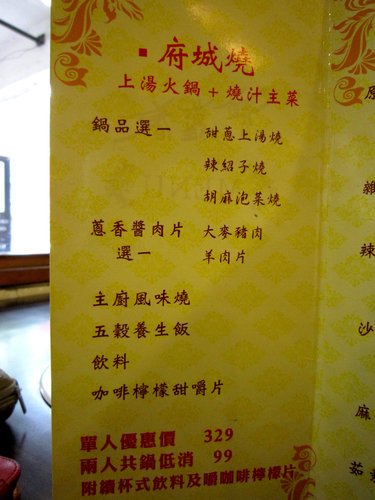 ▪ 府城燒
上湯火鍋+燒汁主菜
鍋品選一 甜蔥上湯燒
辣紹子燒
胡麻泡菜燒
蔥香醬肉片 大麥豬肉
選一 羊肉片
主廚風味燒
五穀養生飯
飲料
咖啡檸檬甜嚼片
單人優惠價 329
兩人共鍋低消 99
附續杯式飲料及嚼咖啡檸檬片
原
雜
辣
沙
麻
茹